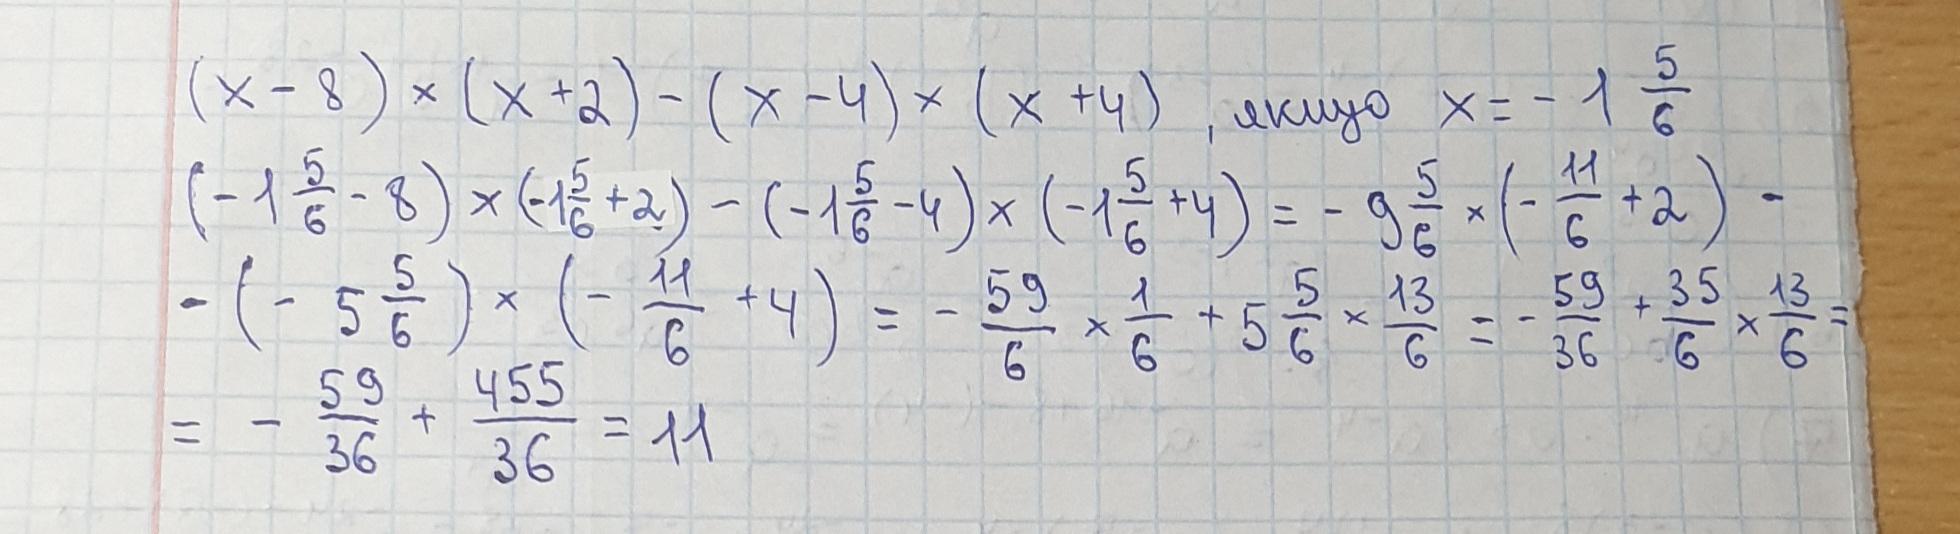 (x - 8) × (x + 2) - (x - 4) × (x + 4), якщо x = - 1 5/6
(- 1 5/6 - 8) × (-1 5/6 + 2) - (-1 5/6 - 4) × (-1 5/6 + 4) = - 9 5/6 × (- 11/6 + 2) -
- (- 5 5/6) × (- 11/6 + 4) = - 59/6 × 1/6 + 5 5/6 × 13/6 = - 59/36 + 35/6 × 13/6 =
= - 59/36 + 455/36 = 11